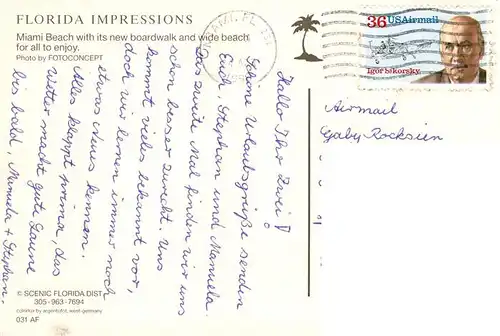 FLORIDA IMPRESSIONS
Miami Beach with its new boardwalk and wide beach
for all to enjoy.
Photo by FOTOCONCEPT
36 USAirmail
Igor Sikorsky
Airmail
Gaby Rocksien
Hallo Ihr Zwei!
Schöne Urlaubsgrüße senden
Euch Stephan und Manuela.
Das zweite Mal finden wir uns
schon besser zurecht. Uns
kommt vieles bekannt vor,
doch wir lernen immer noch
etwas Neues kennen.
Alles klappt prima, das
Wetter macht gute Laune
bis bald, Manuela + Stephan.
© SCENIC FLORIDA DIST.
305-963-7694
color/litho by argentofot, west-germany
031 AF